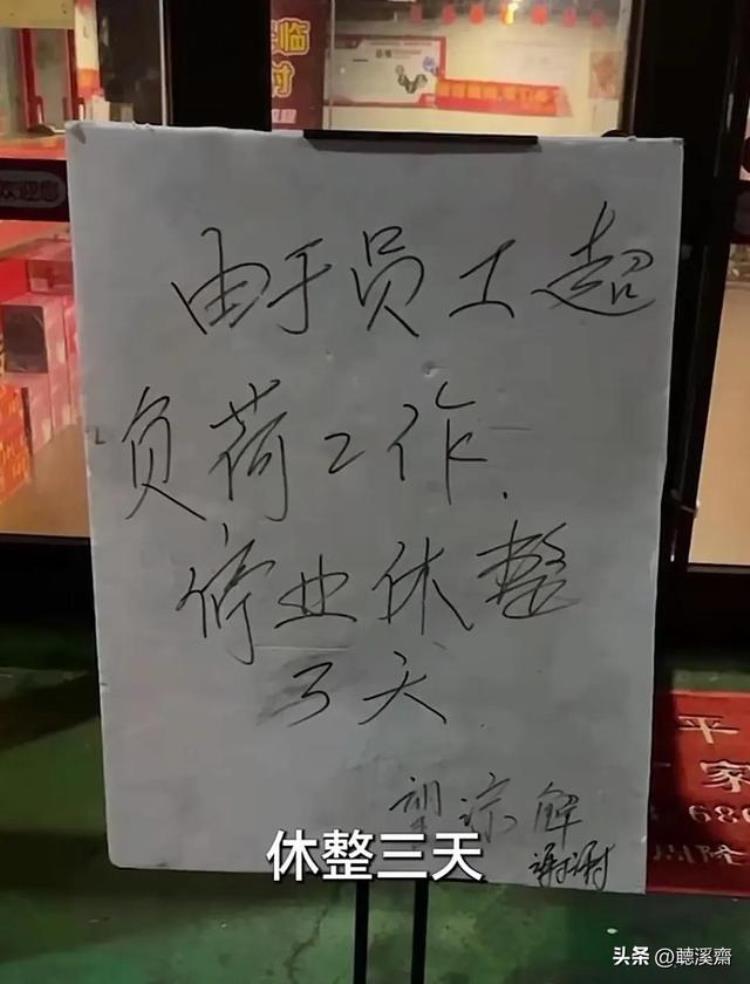 临
付
欢迎您
由于员工超
负荷工作.
停业休整
3天
望谅解
谢谢
休整三天
平
家
686
头条 @聽溪齋